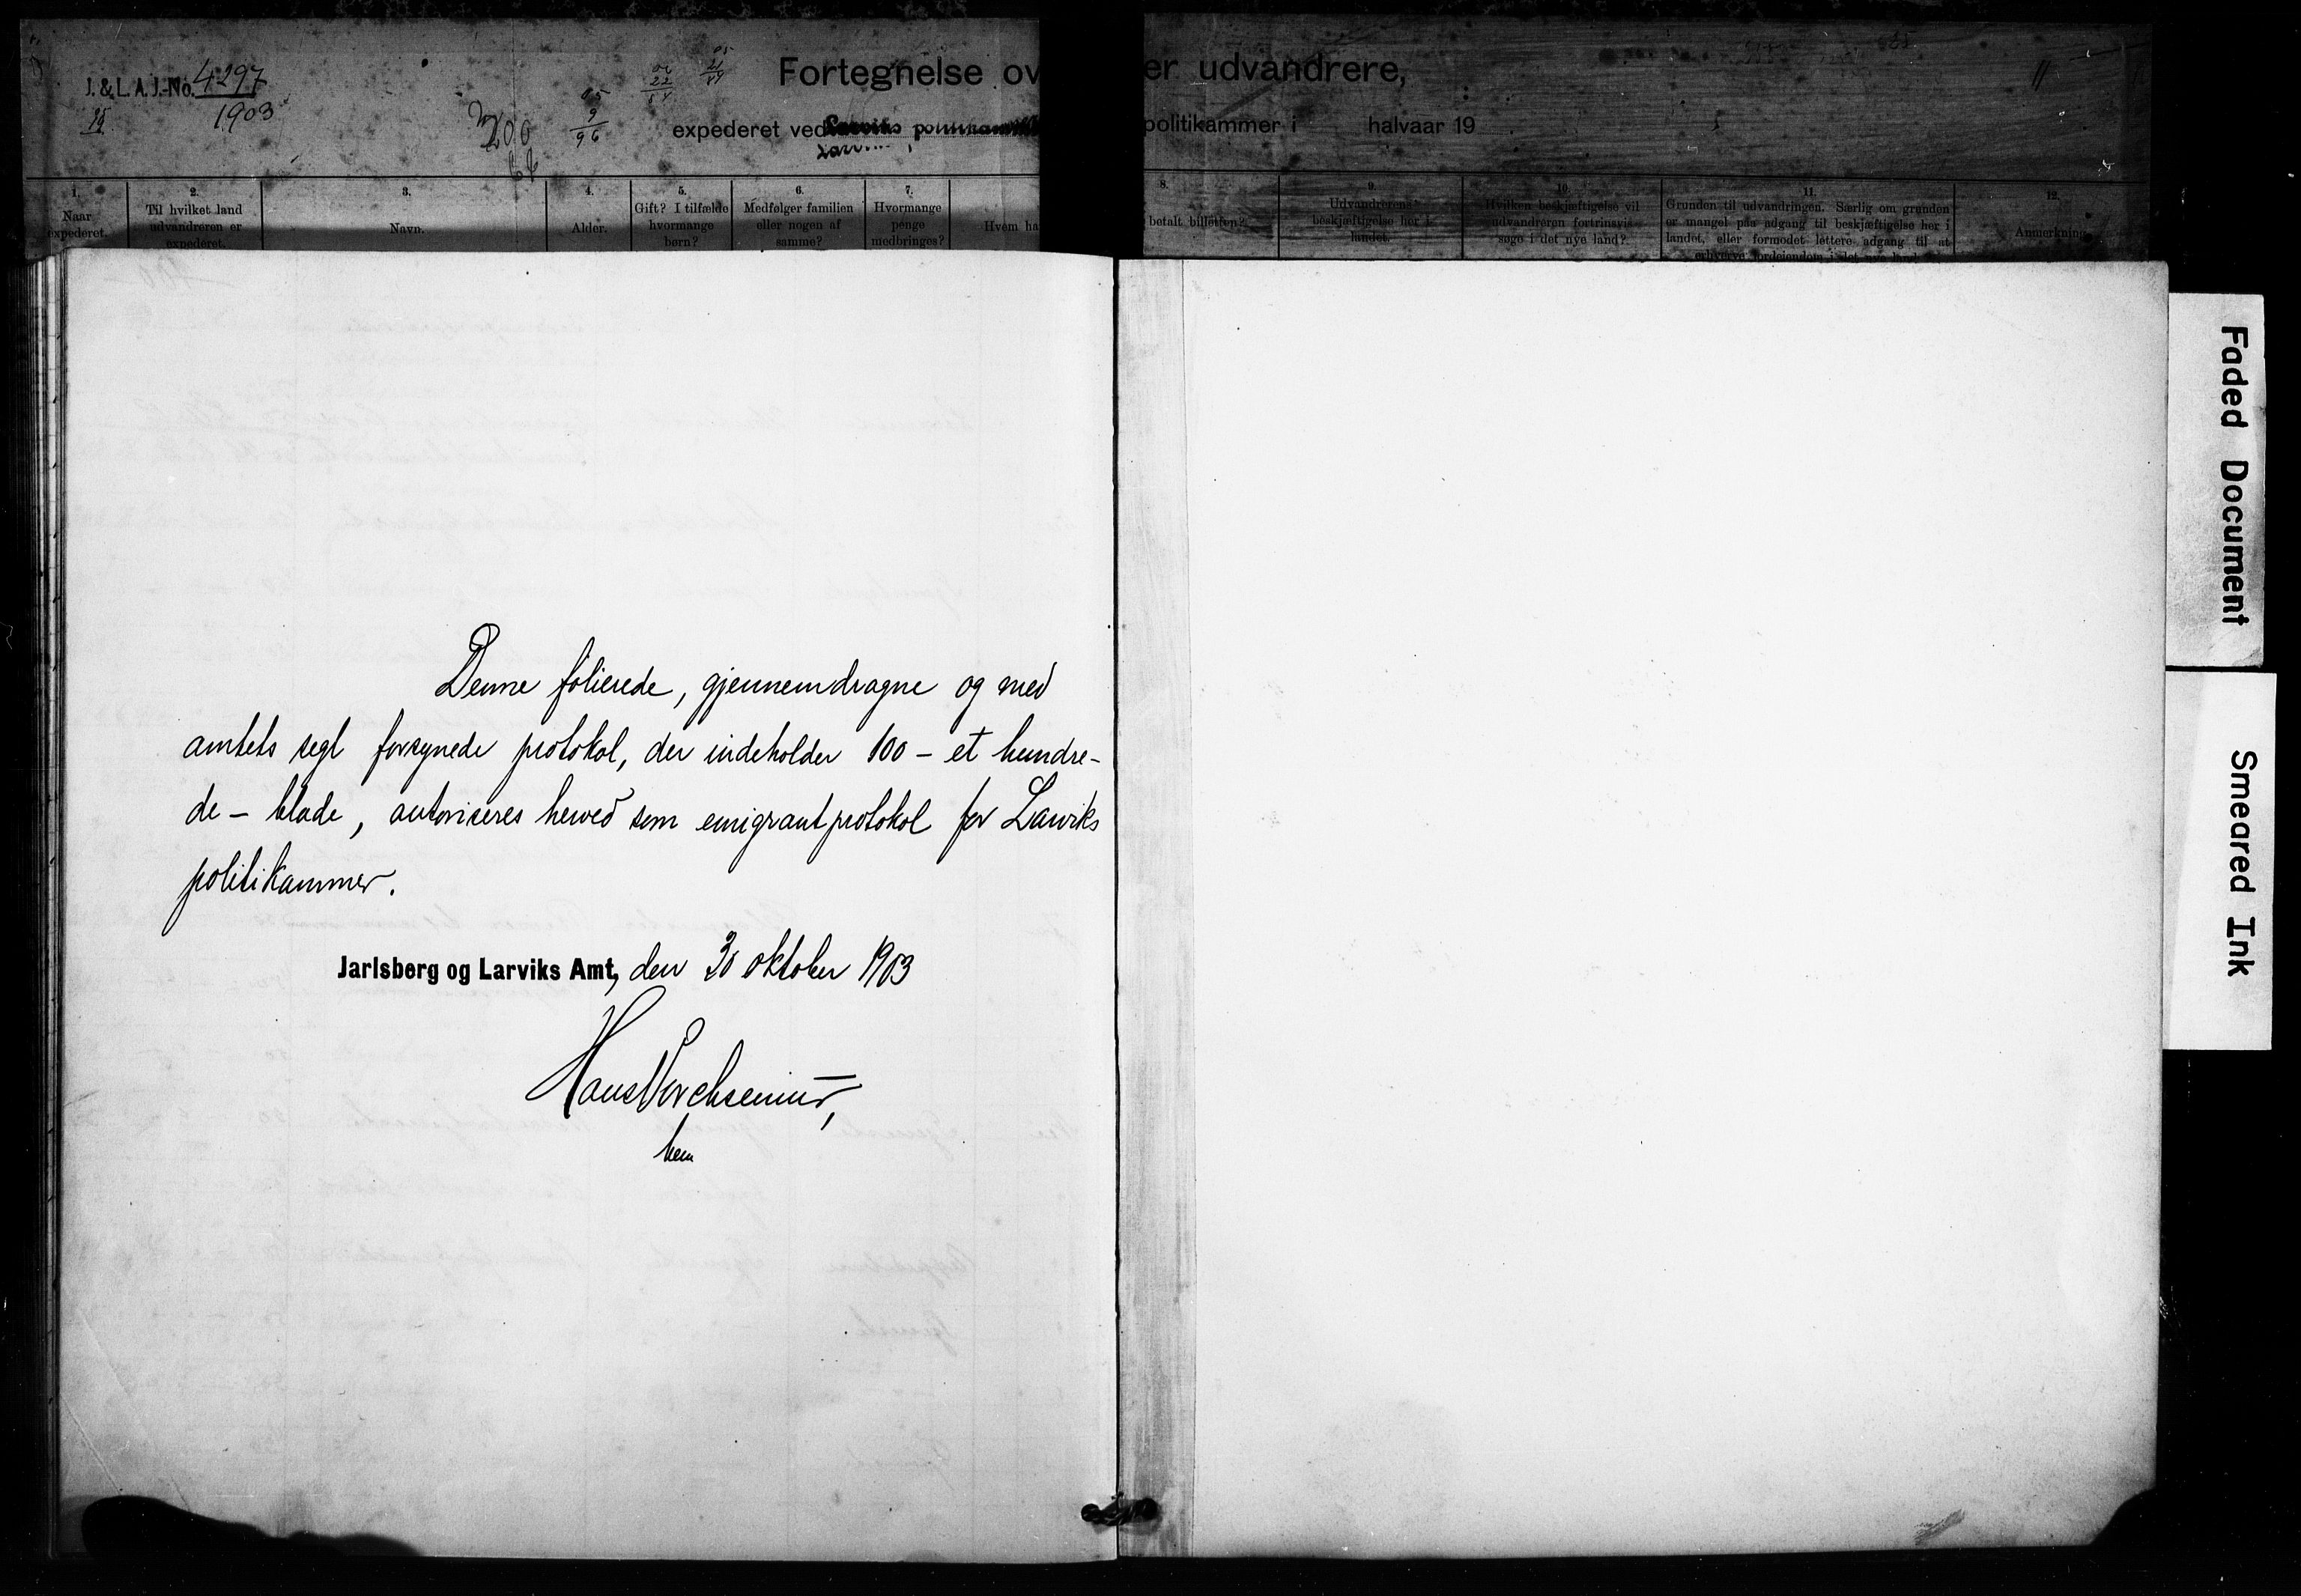 J. & L. A. J.-No. 4297
1903
Fortegnelse over udvandrere,
expederet ved Larviks politikammer i halvaar 19
1. Naar expederet.
2. Til hvilket land udvandreren er expederet.
3. Navn.
4. Alder.
5. Gift? I tilfælde hvormange børn?
6. Medfølger familien eller nogen af samme?
7. Hvormange penge medbringes?
8. Hvem ha betalt billetten?
9. Udvandrerens beskjæftigelse her i landet.
10. Hvilken beskjæftigelse vil udvandreren fortrinsvis søge i det nye land?
11. Grunden til udvandringen. Særlig om grunden er mangel paa adgang til beskjæftigelse her i landet, eller formodet lettere adgang til at
12. Anmerkning
Denne folierede, gjennemdragne og med
amtets segl forsynede protokol, der indeholder 100 – et hundre-
de – blade, autoriseres herved som emigrantprotokol for Larviks
politikammer.
Jarlsberg og Larviks Amt, den 30 oktober 1903
Faded Document
Smeared Ink